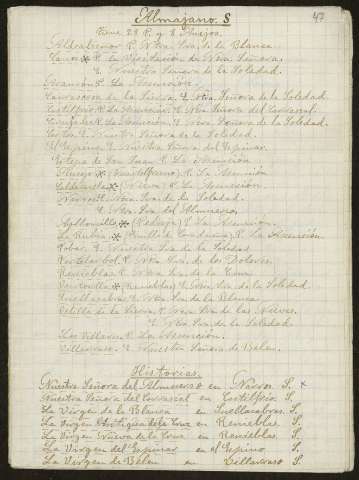 Almajano. S
47
tiene 28 P. y 8 Anejos.
Aldealseñor R. Ntra Sra. de la Blanca.
R. La Visitación de Ntra Señora.
E. Nuestra Señora de la Soledad.
R. La Asunción.
de la Sierra, E. Ntra Señora de la Soledad.
Castilfrío R. La Asunción, E. Ntra Sra del Carrascal
R. La Asunción, E. Ntra Señora de la Soledad.
E. Nuestra Señora de la Soledad.
El Espino, E. Nuestra Señora del Espinar
Estepa de San Juan R. La Asunción
R. La Asunción
R. La Asunción.
Narros E. Ntra Sra. de la Soledad.
E. Ntra Sra. del Almuerzo.
R. La Asunción.
La Rubia * R. La Asunción.
E. Nuestra Sra. de la Soledad
R. Ntra Sra. de los Dolores.
Renieblas R. Ntra Sra. de la Cruz
* (Renieblas) E. Ntra Sra. de la Soledad.
Suellacabras E. Ntra Sra. de la Blanca.
de la Sierra, R. Ntra Sra. de las Nieves.
E. Ntra Sra. de la Soledad.
Los Villares R. La Asunción.
Villarraso. E. Nuestra Señora de Belen.
Historias.
Nuestra Señora del Almuerzo en Narros S. x
Nuestra Señora del Carrascal en Castilfrío S.
La Virgen de la Blanca en Suellacabras S.
La Virgen Antigua de la Cruz en Renieblas S.
La Virgen Nueva de la Cruz en Renieblas S.
La Virgen del Espinar en el Espino S.
La Virgen de Belen en Villarraso S.